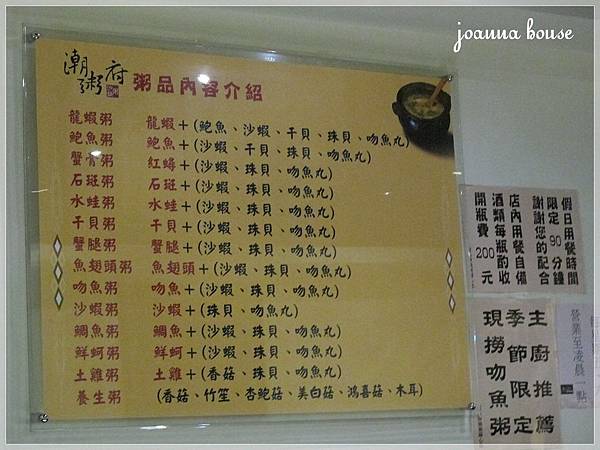 joanna house
潮粥府
粥品內容介紹
龍蝦粥 龍蝦＋(鮑魚、沙蝦、干貝、珠貝、吻魚丸)
鮑魚粥 鮑魚＋(沙蝦、干貝、珠貝、吻魚丸)
蟹膏粥 紅蟳＋(沙蝦、珠貝、吻魚丸)
石斑粥 石斑＋(沙蝦、珠貝、吻魚丸)
水蛙粥 水蛙＋(沙蝦、珠貝、吻魚丸)
干貝粥 干貝＋(沙蝦、珠貝、吻魚丸)
蟹腿粥 蟹腿＋(沙蝦、珠貝、吻魚丸)
魚翅頭粥 魚翅頭＋(沙蝦、珠貝、吻魚丸)
吻魚粥 吻魚＋(沙蝦、珠貝、吻魚丸)
沙蝦粥 沙蝦＋(珠貝、吻魚丸)
鯛魚粥 鯛魚＋(沙蝦、珠貝、吻魚丸)
鮮蚵粥 鮮蚵＋(沙蝦、珠貝、吻魚丸)
土雞粥 土雞＋(香菇、珠貝、吻魚丸)
養生粥 (香菇、竹笙、杏鮑菇、美白菇、鴻喜菇、木耳)
假日用餐時間
限定90分鐘
謝謝您的配合
店內用餐自備
酒類每瓶酌收
開瓶費200元
主廚推薦
季節限定
現撈吻魚粥
營業至凌晨一點